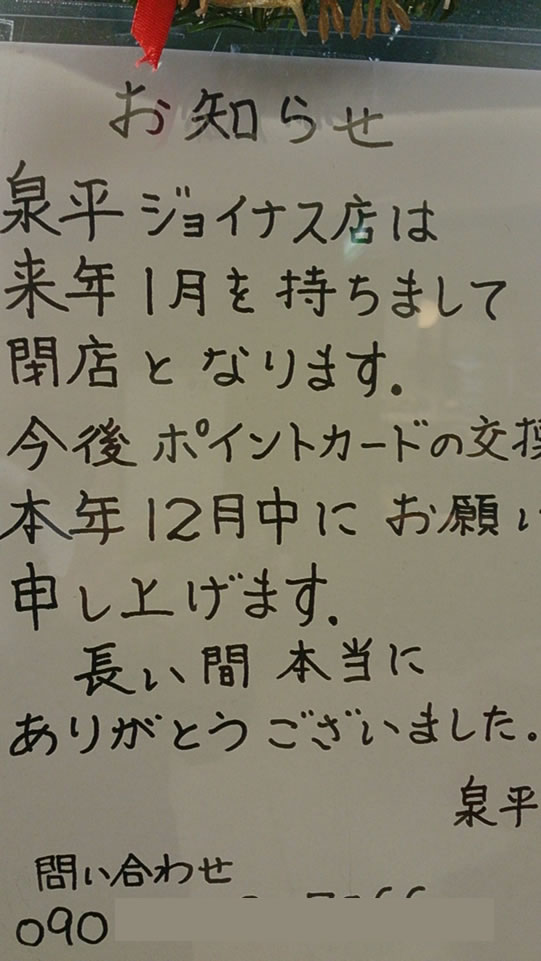 お知らせ
泉平ジョイナス店は
来年1月を持ちまして
閉店となります。
今後ポイントカードの交換
本年12月中にお願い
申し上げます。
長い間本当に
ありがとうございました。
泉平
問い合わせ
090